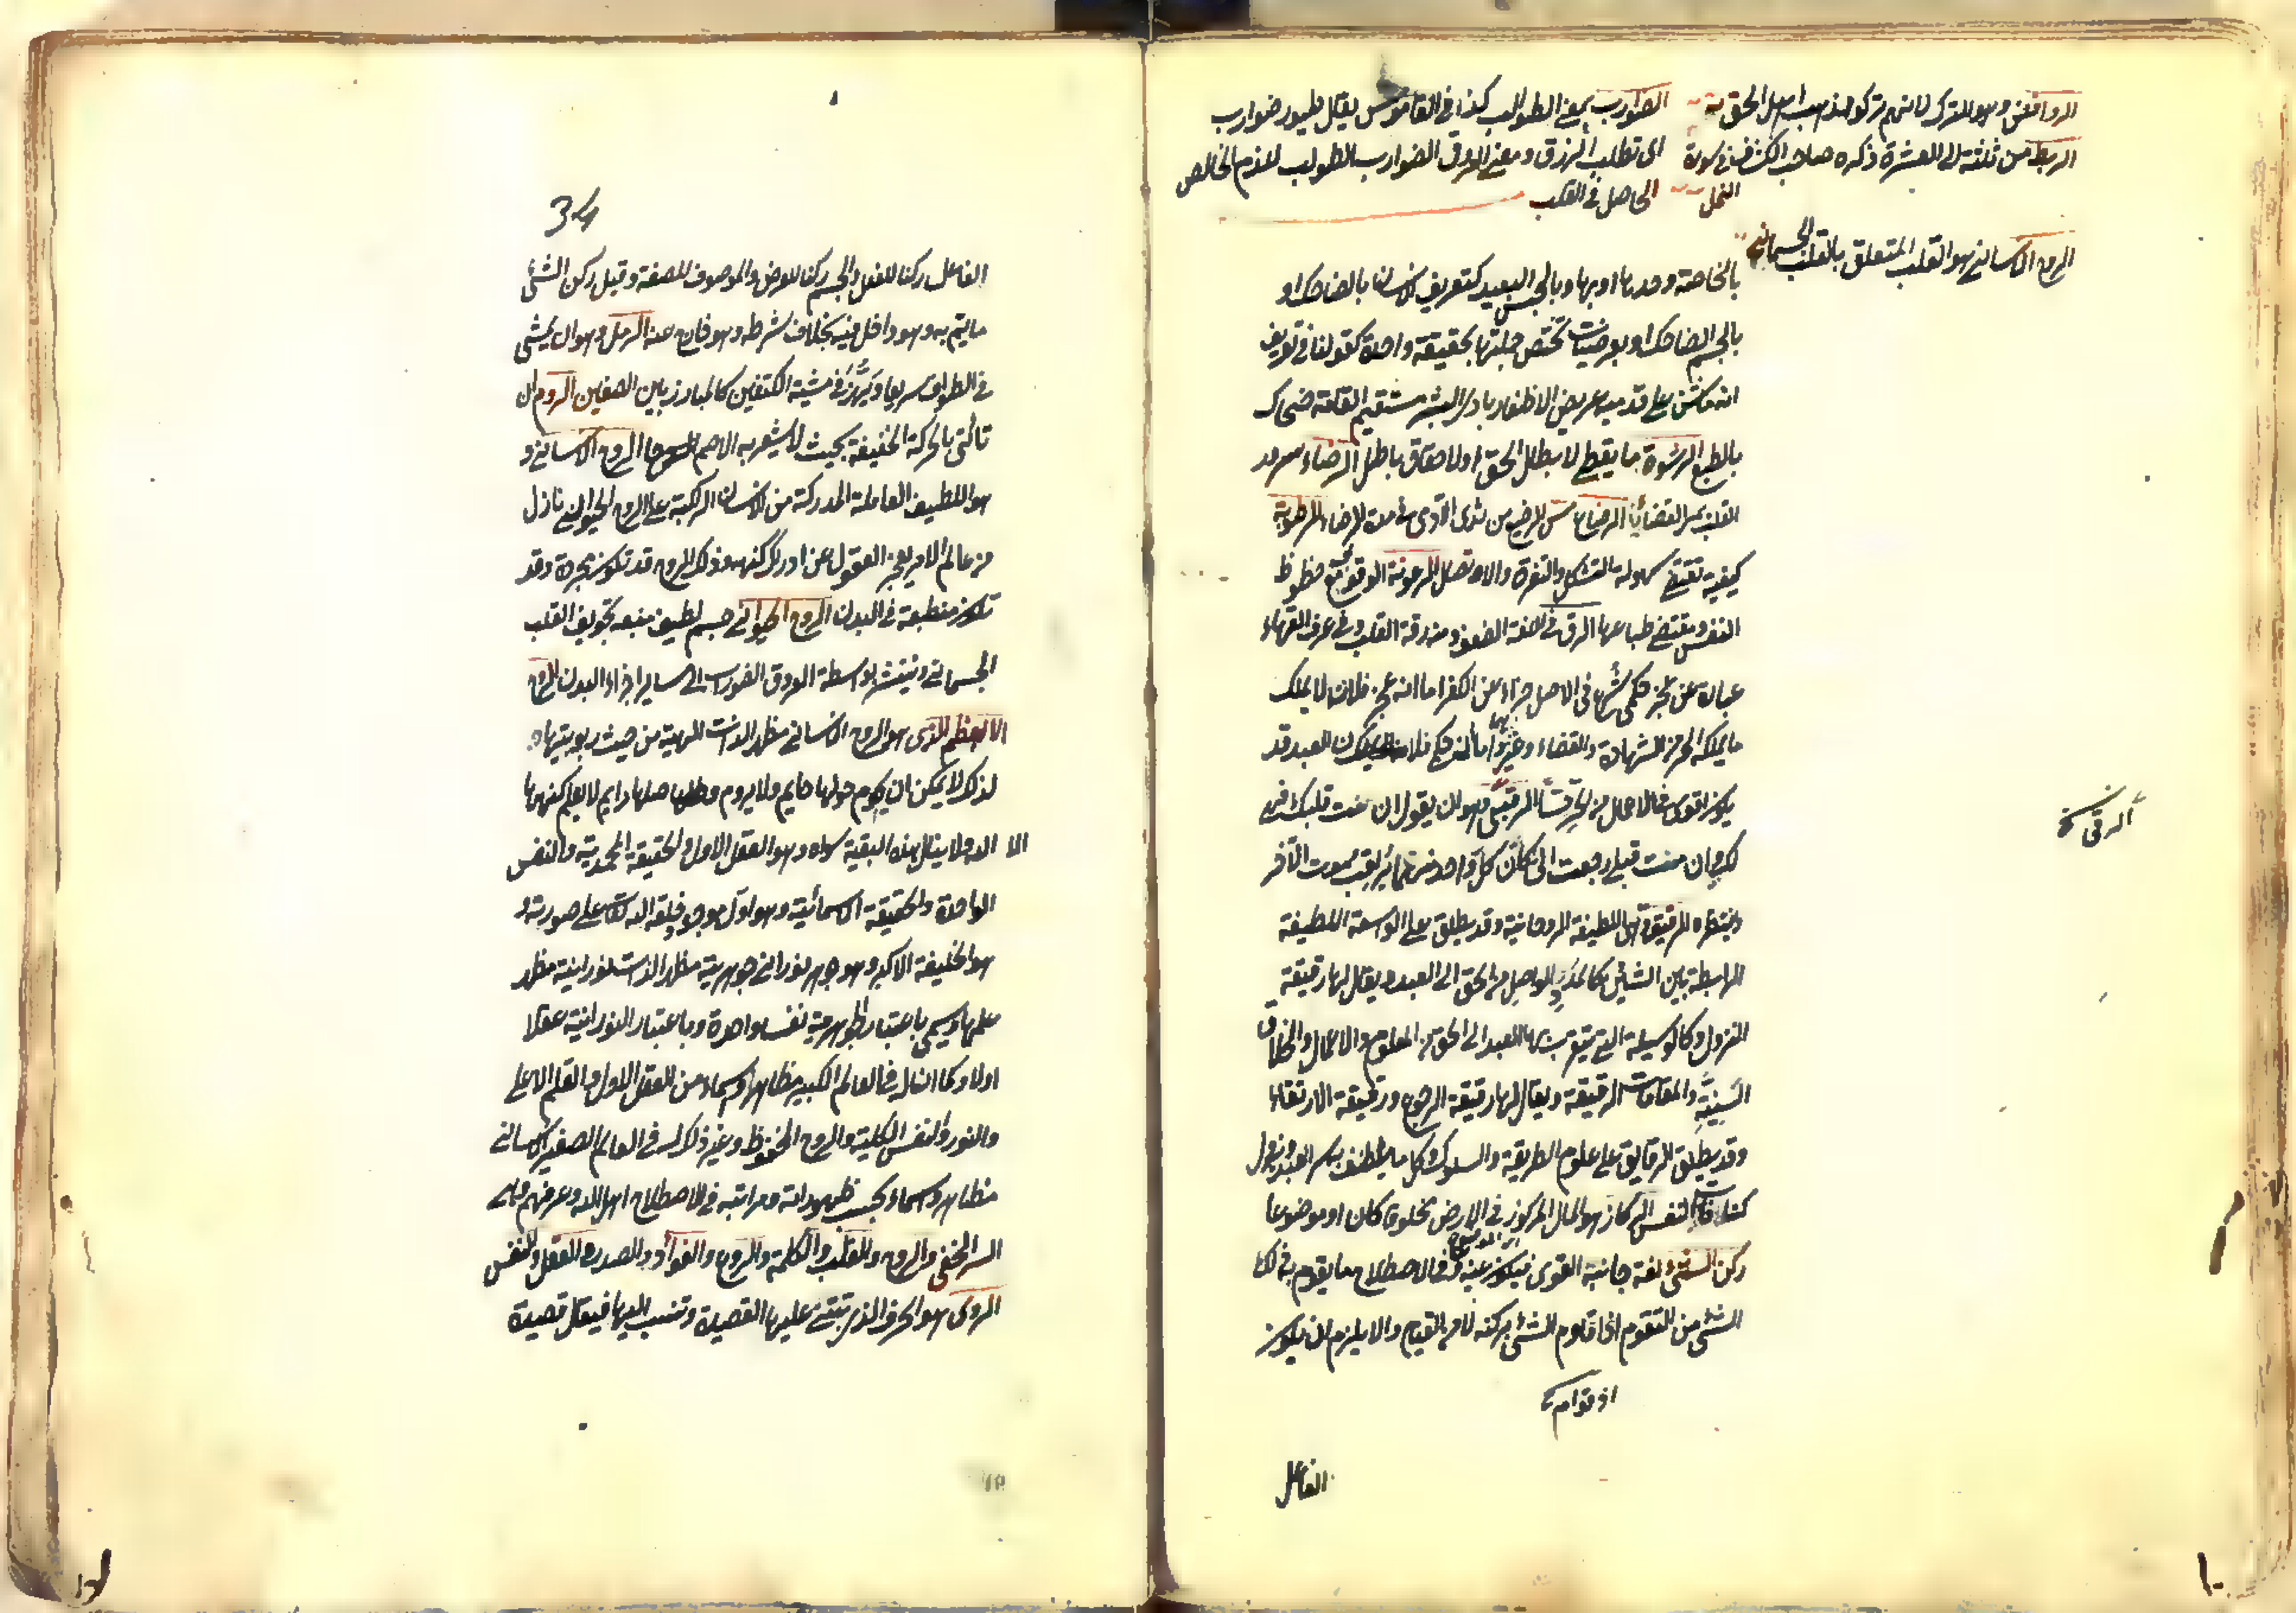 الروافض وهو الترك لانهم تركوا مذهب اهل الحق
الرهط من ثلثة الى العشرة ذكره صاحب الكشاف في سورة
النمل
الضوارب بمعنى الطوالب كذا في القاموس يقال طيور ضوارب
اى تطلب الرزق ومعنى العروق الضوارب الطوالب للدم الخالص
الحاصل في القلب
الروح الانساني هو القلب المتعلق بالقلب الجسماني
بالخاصة وحدها او بها وبالجنس البعيد كتعريف الانسان بالضاحك او
بالجسم الضاحك او بعرضيات تختص جملتها بحقيقة واحدة كقولنا في تعريف
انه ماش على قدميه عريض الاظفار بادى البشرة مستقيم القامة ضحاك
بالطبع الرشوة ما يعطى لابطال الحق او لاحقاق باطل الرضاء سرور
القلب بمر القضاء الرضاع مص الرضيع من ثدى الآدمى في مدة الرضاع الرطوبة
كيفية تقتضى سهولة التشكل والتفرق والاتصال الرعونة الوقوف مع حظوظ
النفس ومقتضى طباعها الرق في اللغة الضعف ومنه رقة القلب وفي عرف الفقهاء
عبارة عن عجز حكمى شرع في الاصل جزاء عن الكفر اما انه عجز فلانه لا يملك
ما يملكه الحر من الشهادة والقضاء وغيرهما واما انه حكمى فلان العبد قد
يكون اقوى في الاعمال من الحر حسا الرقبى هو ان يقول ان مت قبلك فهى
لك وان مت قبلى رجعت الى كان كل واحد منهما يراقب موت الآخر
وينتظره الرقيقة هى اللطيفة الروحانية وقد يطلق على الواسطة اللطيفة
الرابطة بين الشيئين كالمدد الواصل من الحق الى العبد ويقال لها رقيقة
النزول وكالوسيلة التى يتقرب بها العبد الى الحق من العلوم والاعمال والاخلاق
السنية والمقامات الرفيعة ويقال لها رقيقة الرجوع ورقيقة الارتقاء
وقد يطلق الرقايق على علوم الطريقة والسلوك وكل ما يتلطف به سر العبد ويزول
كثافات النفس الركاز هو المال المركوز في الارض مخلوقا كان او موضوعا
ركن الشئ لغة جانبه القوى فيكون عينه وفي الاصطلاح ما يقوم به ذلك
الشئ من التقوم اذ قوام الشئ بركنه لا من القيام والا يلزم ان يكون
اذ قوام
الفاعل
الرق
34
الفاعل ركنا للفعل والجسم ركنا للعرض والموصوف للصفة وقيل ركن الشئ
ما يتم به وهو داخل فيه بخلاف شرطه وهو خارج عنه الرمل وهو ان يمشى
في الطواف سريعا ويهز في مشيته الكتفين كالمبارز بين الصفين الروم ان
تأتى بالحركة الخفيفة بحيث لا يشعر به الاصم الروح الانسانى و
هو اللطيف العاملة المدركة من الانسان الراكبة على الروح الحيوانى نازل
من عالم الامر يعجز العقول عن ادراك كنهه وذلك الروح قد تكون مجردة وقد
تكون منطبعة في البدن الروح الحيوانى جسم لطيف منبعه تجويف القلب
الجسمانى وينتشر بواسطة العروق الضوارب الى ساير اجزاء البدن الروح
الاعظم الذى هو الروح الانسانى مظهر الذات الالهية من حيث ربوبيتها و
لذلك لا يمكن ان يحوم حولها حايم ولا يروم وصلها رايم لا يعلم كنهها
الا الله ولا ينال هذه البقية سواه وهو العقل الاول والحقيقة المحمدية والنفس
الواحدة والحقيقة الاسمائية وهو اول موجود خلقه الله تعالى على صورته و
هو الخليفة الاكبر وهو جوهر نورانى جوهريته مظهر الذات نورانيته مظهر
علمها ويسمى باعتبار الجوهرية نفسا واحدة وباعتبار النورانية عقلا
اولا وكما ان له في العالم الكبير مظاهر واسماء من العقل الاول والقلم الاعلى
والنور والنفس الكلية والروح المحفوظ وغير ذلك له في العالم الصغير الانسانى
مظاهر واسماء بحسب ظهوراته ومراتبه في الاصطلاح اهل الله وغيرهم وهى
السر الخفى والروح والقلب والكلمة والروع والفؤاد والصدر والعقل والنفس
الروى هو الحرف الذى تبتنى عليها القصيدة وتنسب اليها فيقال قصيدة